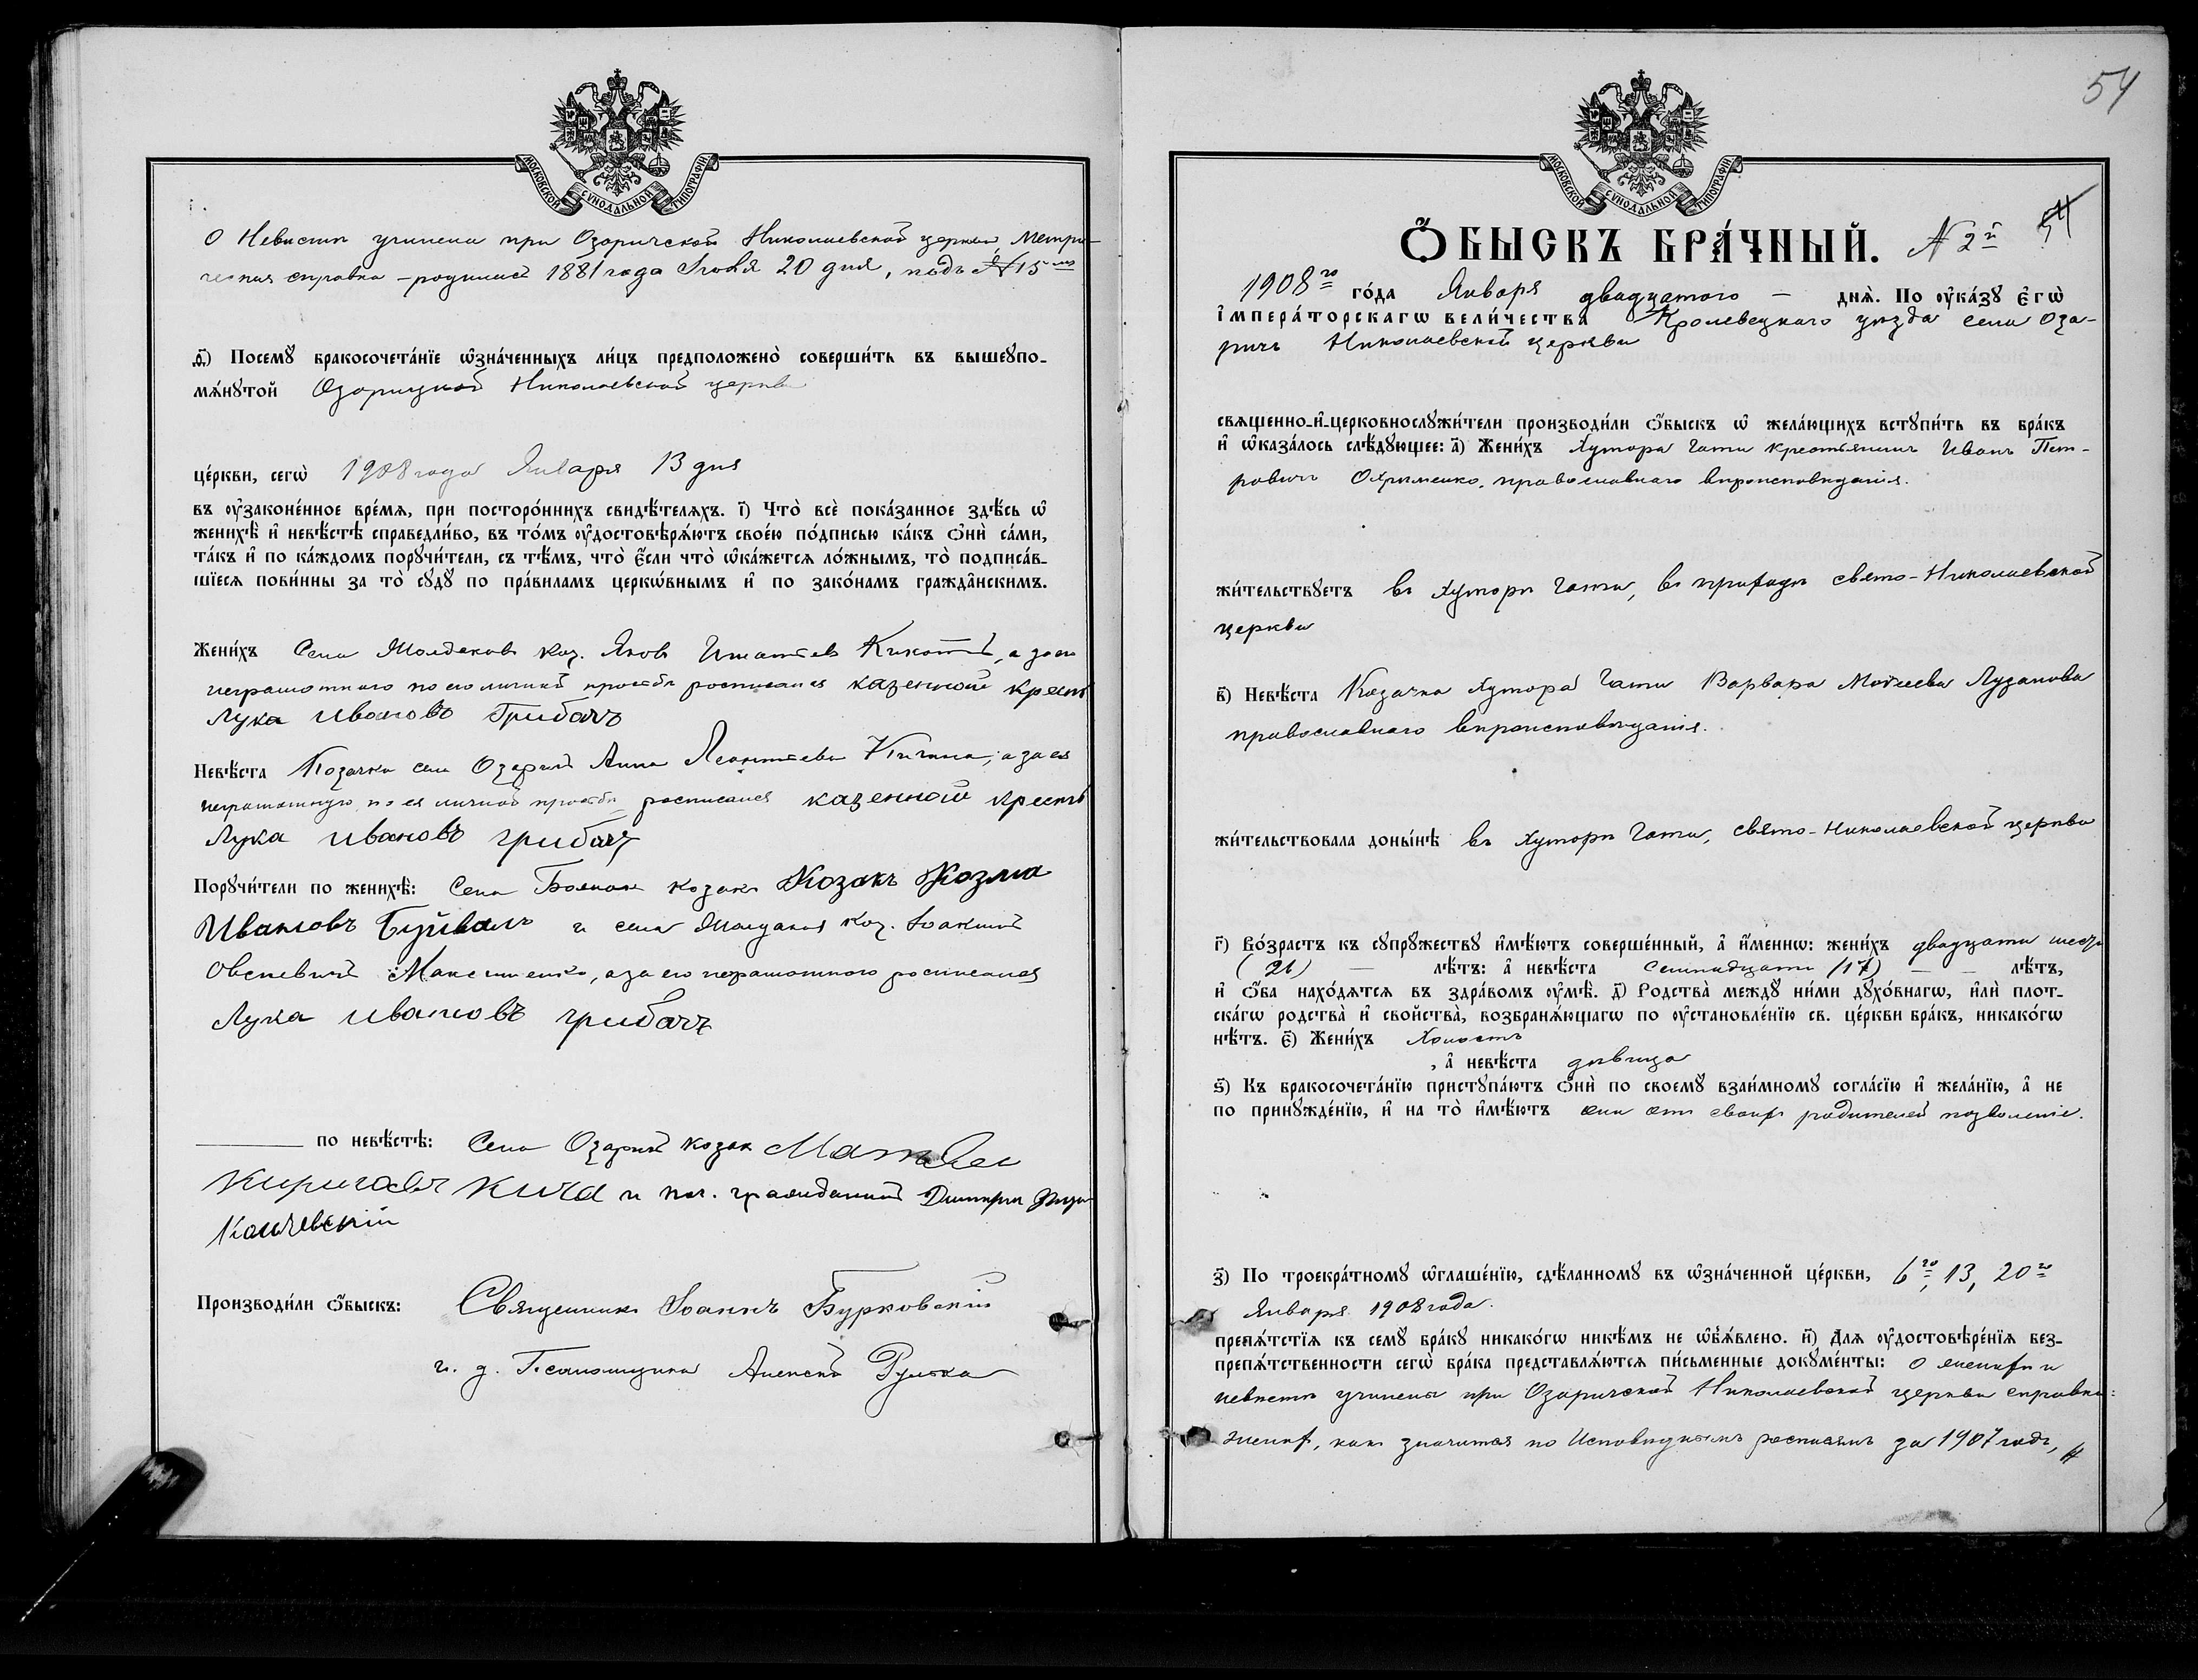 МОСКОВСКОЙ СѴНОДАЛЬНОЙ ТИПОГРАФІИ
О Невѣстѣ учинена при Озаричской Николаевской церкви Метри-
ческая справка – родилась 1881 года Іюня 20 дня, подъ № 15
д҃і) Посемꙋ бракосочета́нїе ѡ҆зна́ченныхъ ли́цъ предположено̀ соверши́ть въ вышеꙋпо-
мѧ́нꙋтой Озарицкой Николаевской церкви
це́ркви, сегѡ̀ 1908 года Января 13 дня
въ ᲂу҆законе́нное вре́мѧ, при посторо́ннихъ свидѣ́телѧхъ. і҃) Что̀ всѐ пока́занное здѣ́сь ѡ҆
женихѣ̀ и҆ невѣ́стѣ справедли́во, въ то́мъ ᲂу҆достовѣрѧ́ютъ свое́ю по́дписью ка́къ ѻ҆нѝ са́ми,
та́къ и҆ по ка́ждомъ порꙋчи́тели, съ тѣ́мъ, что̀ є҆́сли что̀ ѡ҆ка́жется ло́жнымъ, то̀ подписа́в-
шїесѧ пови́нны за то̀ сꙋдꙋ̀ по пра́виламъ церкѡ́внымъ и҆ по зако́намъ гражда̑нскимъ.
Жени́хъ Села Молдаковъ коз. Яковъ Игнатьевъ Кикоть, а за его
неграмотнаго по его личной просьбѣ росписался казенной крест
Лука Ивановъ Грибачъ
Невѣ́ста Козачка села Озаричъ Анна Леонтіева Кичина, а за ея
неграмотную по ея личной просьбѣ росписался казенной крестъ
Лука Ивановъ Грибачъ
Порꙋчи́тели по женихѣ̀: Села козакъ Козакъ Козма
Ивановъ Буйвалъ и села коз. Іоакимъ
Овсіевичъ Максименко, а за его неграмотнаго росписался
Лука Ивановъ Грибачъ
по невѣ́стѣ: Села Озаричъ козак Матвѣй
Кича и поч. гражданинъ Дмитрій
Производи́ли ѻ҆́быскъ: Священникъ Іоаннъ Бурковскій
и. д. Псаломщика Алексѣй Рулька
54
МОСКОВСКОЙ СѴНОДАЛЬНОЙ ТИПОГРАФІИ
Ѻ҆́БЫСКЪ БРА́ЧНЫЙ. № 2й 54
1908го го́да Января двадцатаго – днѧ̀. По ᲂу҆ка́зꙋ є҆гѡ̀
і҆мпера́торскагѡ вели́чества Кролевецкаго уѣзда села Оза-
ричъ Николаевской церкви
свѧщенно-и҆-церковнослꙋжи́тели производи́ли ѻ҆́быскъ ѡ҆ жела́ющихъ встꙋпи́ть въ бра́къ
и҆ ѡ҆каза́лось слѣ́дꙋющее: а҃) Жени́хъ Хутора Гати крестьянинъ Иванъ Пет-
ровичъ Охрименко, православнаго вѣроисповѣданія.
жи́тельствꙋетъ въ хуторѣ Гати, въ приходѣ свято-Николаевской
церкви
в҃) Невѣ́ста Козачка хутора Гати Варвара Моѵсеева Лузанова
православнаго вѣроисповѣданія.
жи́тельствовала доны́нѣ въ хуторѣ Гати, свято-Николаевской церкви
г҃) Во́зрастъ къ сꙋпрꙋ́жествꙋ и҆мѣ́ютъ соверше́нный, а҆ и҆́меннѡ: жени́хъ двадцати шести
(26) — лѣ́тъ: а҆ невѣ́ста семнадцати (17) — — лѣ́тъ,
и҆ ѻ҆́ба нахо́дѧтсѧ въ здра́вомъ ᲂу҆мѣ̀. д҃) Родства̀ междꙋ̀ ни́ми дꙋхо́внагѡ, и҆лѝ плот-
ска́гѡ родства̀ и҆ свойства̀, возбранѧ́ющагѡ по ᲂу҆становле́нїю св. це́ркви бра́къ, никако́гѡ
нѣ́тъ. є҃) Жени́хъ Холостъ
, а҆ невѣ́ста дѣвица
ѕ҃) Къ бракосочета́нїю пристꙋпа́ютъ ѻ҆нѝ по своемꙋ̀ взаи́мномꙋ согла́сїю и҆ жела́нїю, а҆ не
по принꙋжде́нїю, и҆ на то̀ и҆мѣ́ютъ они отъ своихъ родителей позволеніе.
з҃) По троекра́тномꙋ ѡ҆глаше́нїю, сдѣ́ланномꙋ въ ѡ҆зна́ченной це́ркви, 6го, 13, 20го
Января 1908 года.
препѧ́тстїѧ къ семꙋ̀ бра́кꙋ никако́гѡ никѣ́мъ не ѡ҆б̾ѧ́влено. и҃) Длѧ ᲂу҆достовѣре́нїѧ без-
препѧ́тственности сегѡ̀ бра́ка представлѧ́ютсѧ пи́сьменные докꙋме́нты: О женихѣ и
невѣстѣ учинены при Озаричской Николаевской церкви справки:
женихъ, какъ значится по Исповѣднымъ росписямъ за 1907 годъ,